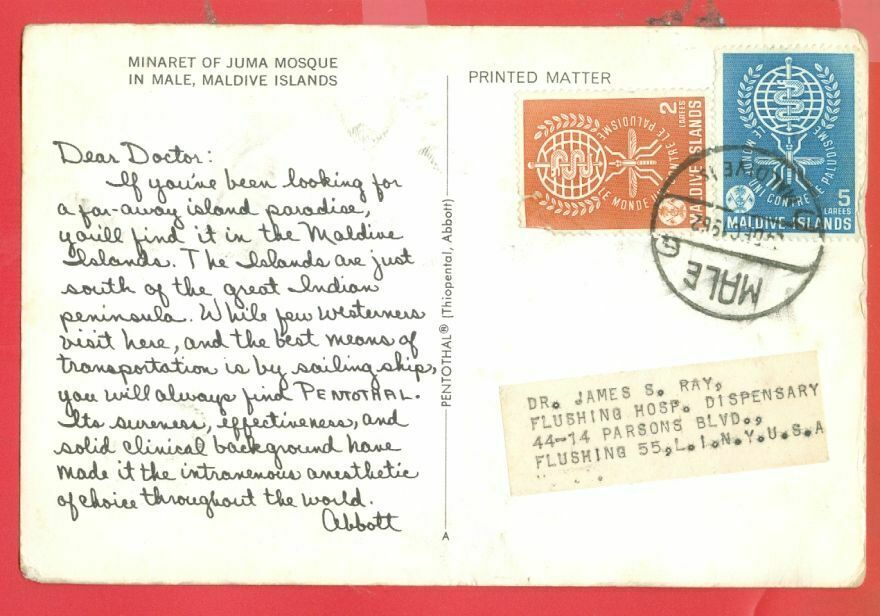 MINARET OF JUMA MOSQUE
IN MALE, MALDIVE ISLANDS
Dear Doctor:
If you've been looking for
a far-away island paradise,
you'll find it in the Maldive
Islands. The Islands are just
south of the great Indian
peninsula. While few westerners
visit here, and the best means of
transportation is by sailing ship,
you will always find PENTOTHAL.
Its sureness, effectiveness, and
solid clinical background have
made it the intravenous anesthetic
of choice throughout the world.
Abbott
PENTOTHAL® (Thiopental, Abbott)
A
PRINTED MATTER
2
LAREES
MALDIVE ISLANDS
LE MONDE UNI CONTRE LE PALUDISME
5
LAREES
MALDIVE ISLANDS
LE MONDE UNI CONTRE LE PALUDISME
MALE
DEC 1962
DR. JAMES S. RAY,
FLUSHING HOSP. DISPENSARY
44-14 PARSONS BLVD.,
FLUSHING 55,L.I.N.Y.U.S.A